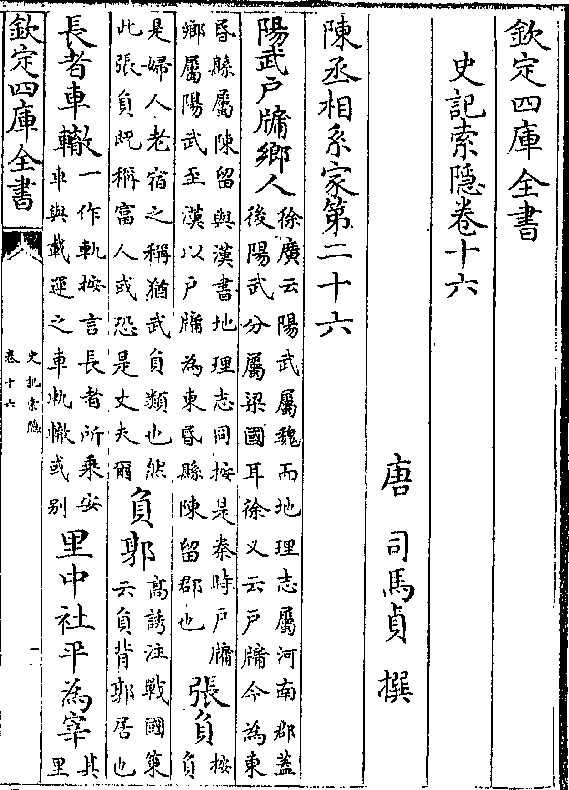 欽定四庫全書
史記索隱卷十六
唐 司馬貞 撰
陳丞相系家第二十六
陽武戶牖鄉人徐廣云陽武屬魏而地理志屬河南郡蓋
後陽武分屬梁國耳徐又云戶牖今為東
昏縣屬陳留與漢書地理志同按是秦時戶牖
鄉屬陽武至漢以戶牖為東昏縣陳留郡也張負按
負
是婦人老宿之稱猶武負類也然
此張負既稱富人或恐是丈夫爾負郭高誘注戰國策
云負背郭居也
長者車轍一作軌按言長者所乘安
車與載運之車軌轍或别里中社平為宰其
里
欽定四庫全書
史記索隱
卷十六
一